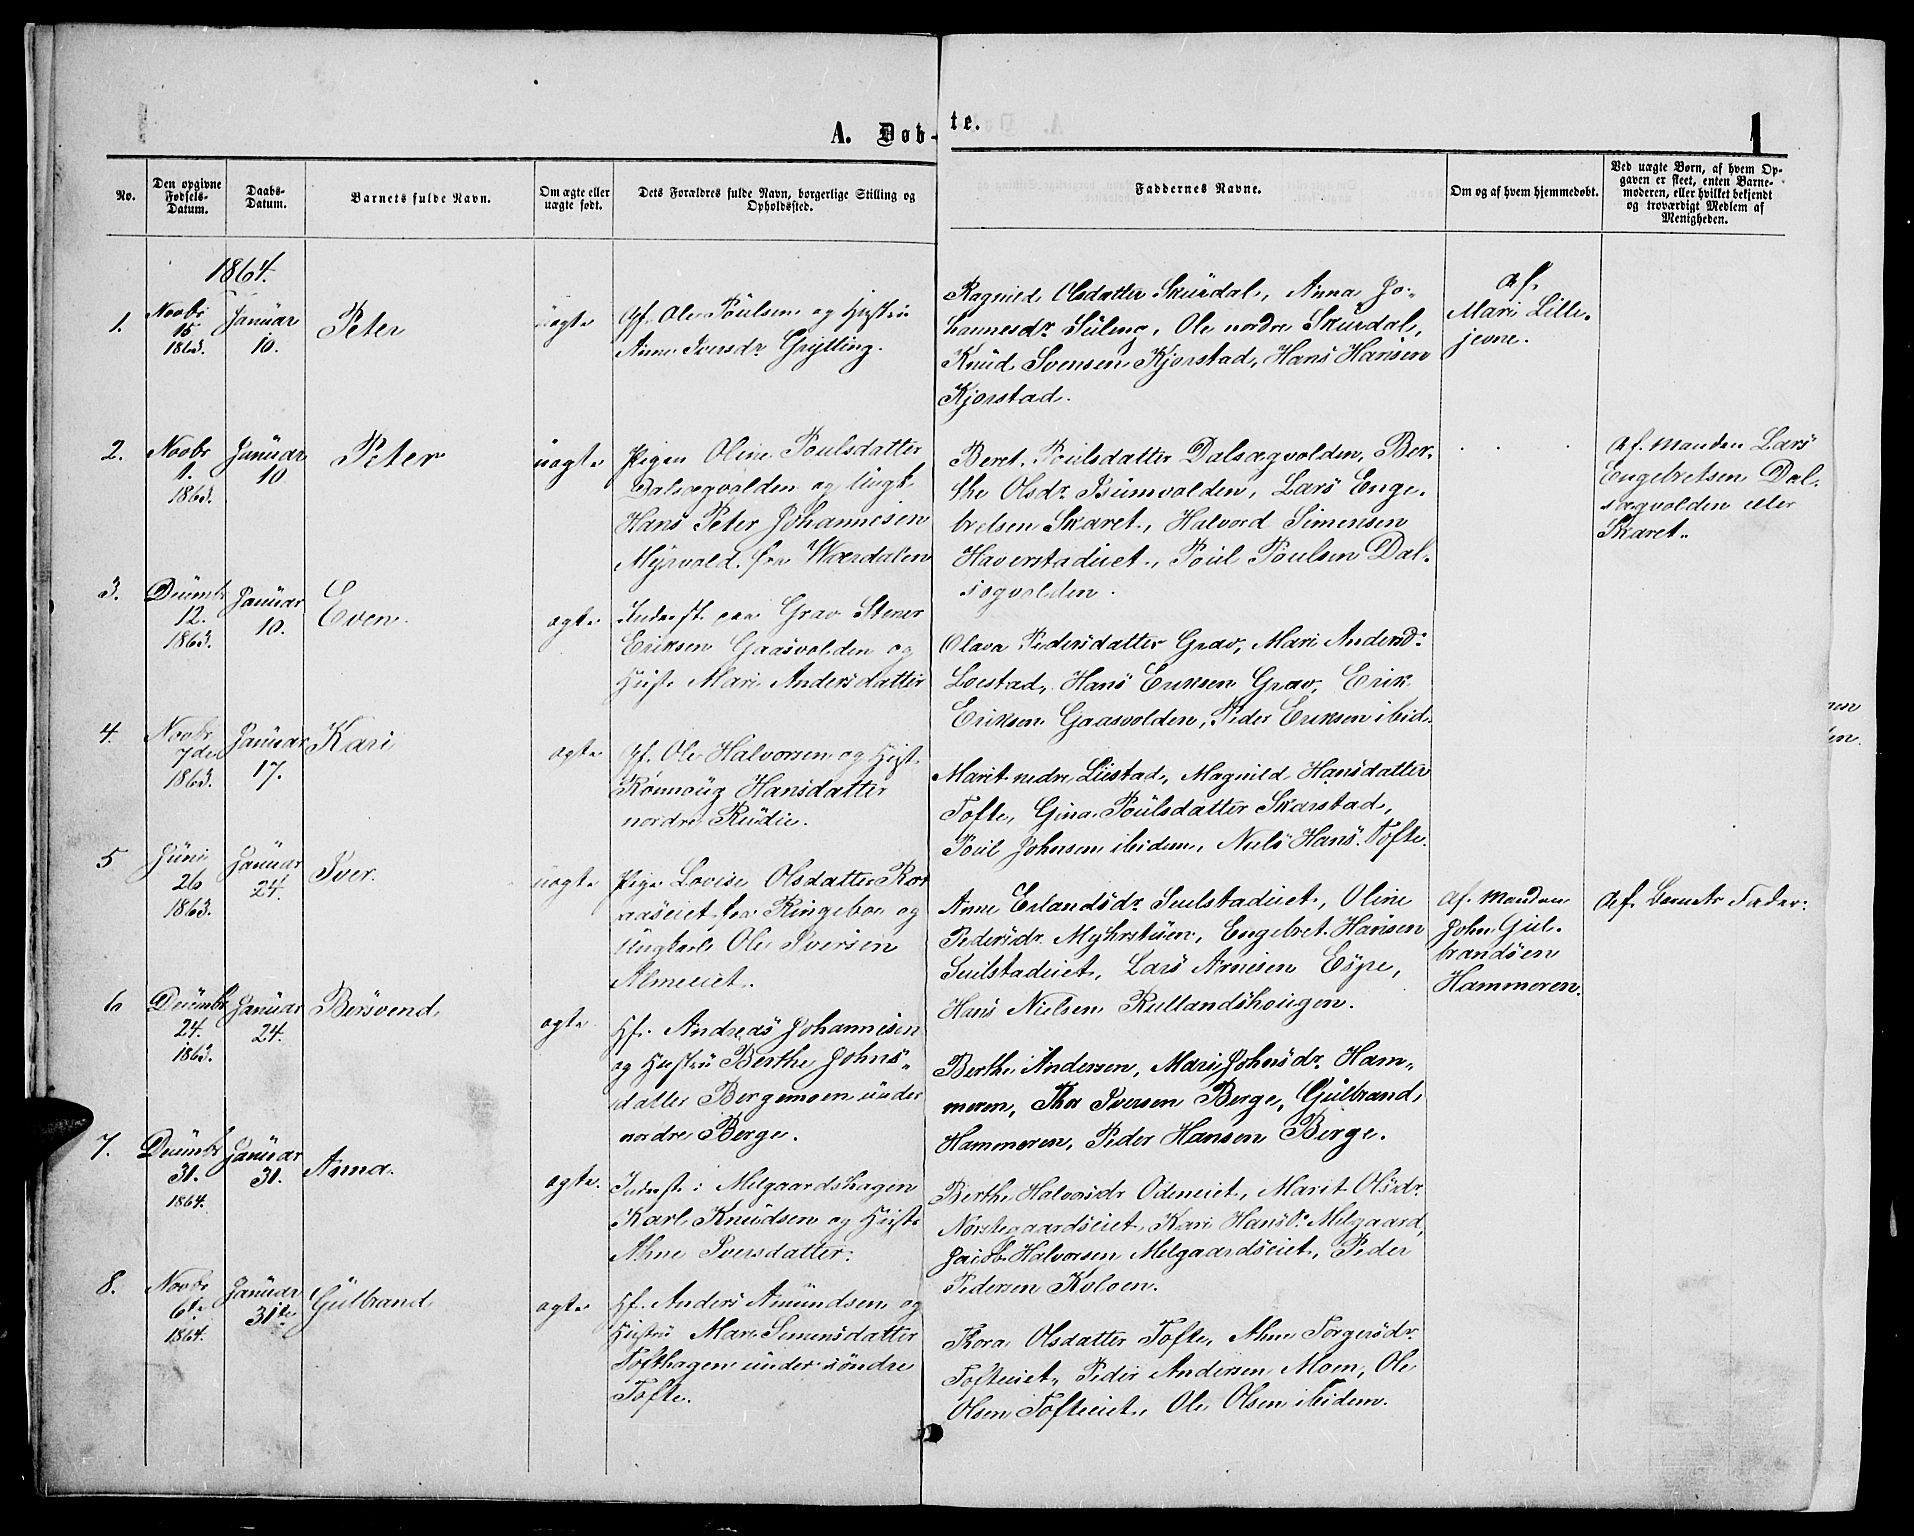 A. Døb-
te.
1
No.
Den opgivne
Fødsels-
Datum.
Daabs-
Datum.
Barnets fulde Navn.
Om ægte eller
uægte født.
Dets Forældres fulde Navn, borgerlige Stilling og
Opholdssted.
Faddernes Navne.
Om og af hvem hjemmedøbt.
Ved uægte Børn, af hvem Op-
gaven er skeet, enten Barne-
moderen, eller hvilket bekjendt
og troværdigt Medlem af
Menigheden.
1864.
1.
Novbr
15
1863.
Januar
10.
Peter
uægte
Gf. Ole Poulsen og Hustru
Anne Iversdr Grytting.
Ragnild Olsdatter Skurdal, Anna Jo-
hannesdr Suleng, Ole nordre Skurdal,
Knud Svensen Kjorstad, Hans Hansen
Kjorstad.
af
Mari Lille-
jevne.
2.
Novbr
1.
1863.
Januar
10
Peter
uægte
Pigen Oline Poulsdatter
Dalsægvolden og Ungk.
Hans Peter Johannesen
Myrvold fra Wærdalen
Beret Poulsdatter Dalsægvolden, Ber-
the Olsdr Bumvolden, Lars Enge-
bretsen Skaret, Halvord Simensen
Haverstadeiet, Poul Poulsen Dal-
sægvolden.
Af Manden Lars
Engebretsen Dal-
sægvolden eller
Skaret.
3.
Decembr
12.
1863.
Januar
10.
Even
ægte
Inderst paa Grav Stener
Eriksen Gaasvolden og
Hust. Mari Andersdatter
Olava Pedersdatter Grav, Mari Andersd.
Loestad, Hans Eriksen Grav, Erik
Eriksen Gaasvolden, Peder Eriksen ibid.
4.
Novbr
7de
1863.
Januar
17.
Kari
ægte
Gf. Ole Halvorsen og Hust.
Rønnoug Hansdatter
nordre Rudie.
Marit nedre Liestad, Magnild Hansdatter
Tofte, Gina Poulsdatter Skarstad,
Poul Johnsen ibidem, Niels Hans. Tofte.
5
Juni
26
1863.
Januar
24.
Iver.
uægte
Pige Lovise Olsdatter Ror
aaseiet fra Ringeboe og
Ungkarl Ole Iversen
Almeeiet.
Anne Erlandsdr Suilstadeiet, Oline
Pedersdr Myhrstuen, Engebret Hansen
Suilstadeiet, Lars Arnesen Espe,
Hans Nielsen Rullandshougen.
Af Manden
John Gul-
brandsen
Hammeren.
Af Barnets Fader.
6
Decembr
24.
1863.
Januar
24.
Bersvend
ægte
Hf. Andreas Johannesen
og Hustru Berthe Johns-
datter Bergemoen under
nordre Berge.
Berthe Andersen, Mari Johnsdr Ham-
meren, Tho Iversen Berge, Gulbrand
Hammeren, Peder Hansen Berge.
7.
Decembr
31.
1864.
Januar
31.
Anna.
ægte.
Inderst i Melgaardshagen
Karl Knudsen og Hust.
Ahne Iversdatter.
Berthe Halvorsdr Odeneiet, Marit Olsdr.
Norstegaardseiet, Kari Hansdr Melgaard,
Jacob Halvorsen Melgaardseiet, Peder
Pedersen Koloen.
8.
Novbr
6te
1864.
Januar
31te
Gulbrand
ægte
Hf. Anders Amundsen og
Hustru Mari Simensdatter
Tofthagen under søndre
Tofte.
Thora Olsdatter Tofte, Ahne Torgersdr.
Tofteeiet, Peder Andersen Moen, Ole
Olsen Tofteeiet, Ole Olsen ibidem.